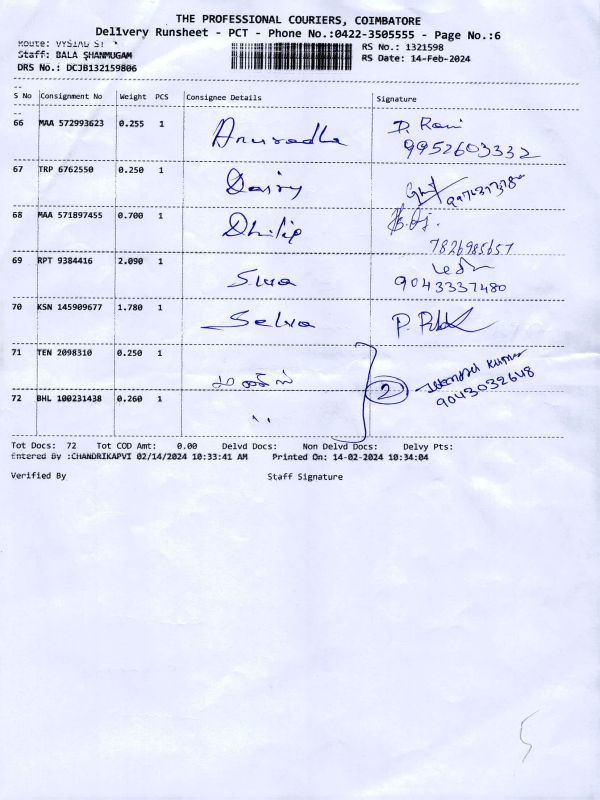 THE PROFESSIONAL COURIERS, COIMBATORE
Delivery Runsheet - PCT - Phone No.:0422-3505555 - Page No.:6
Route: VYSIAL ST
RS No.: 1321598
Staff: BALA SHANMUGAM
RS Date: 14-Feb-2024
DRS No.: DCJB132159806
S No Consignment No Weight PCS Consignee Details Signature
66 MAA 572993623 0.255 1 Anuradha D. Rani
9952603332
67 TRP 6762550 0.250 1 Daisy
68 MAA 571897455 0.700 1 Dhilip
7826985657
69 RPT 9384416 2.090 1 Siva
9043337480
70 KSN 145909677 1.780 1 Selva
71 TEN 2098310 0.250 1
2
9043032648
72 BHL 100231438 0.260 1 ,,
Tot Docs: 72 Tot COD Amt: 0.00 Delvd Docs: Non Delvd Docs: Delvy Pts:
Entered By :CHANDRIKAPVI 02/14/2024 10:33:41 AM Printed On: 14-02-2024 10:34:04
Verified By Staff Signature
5